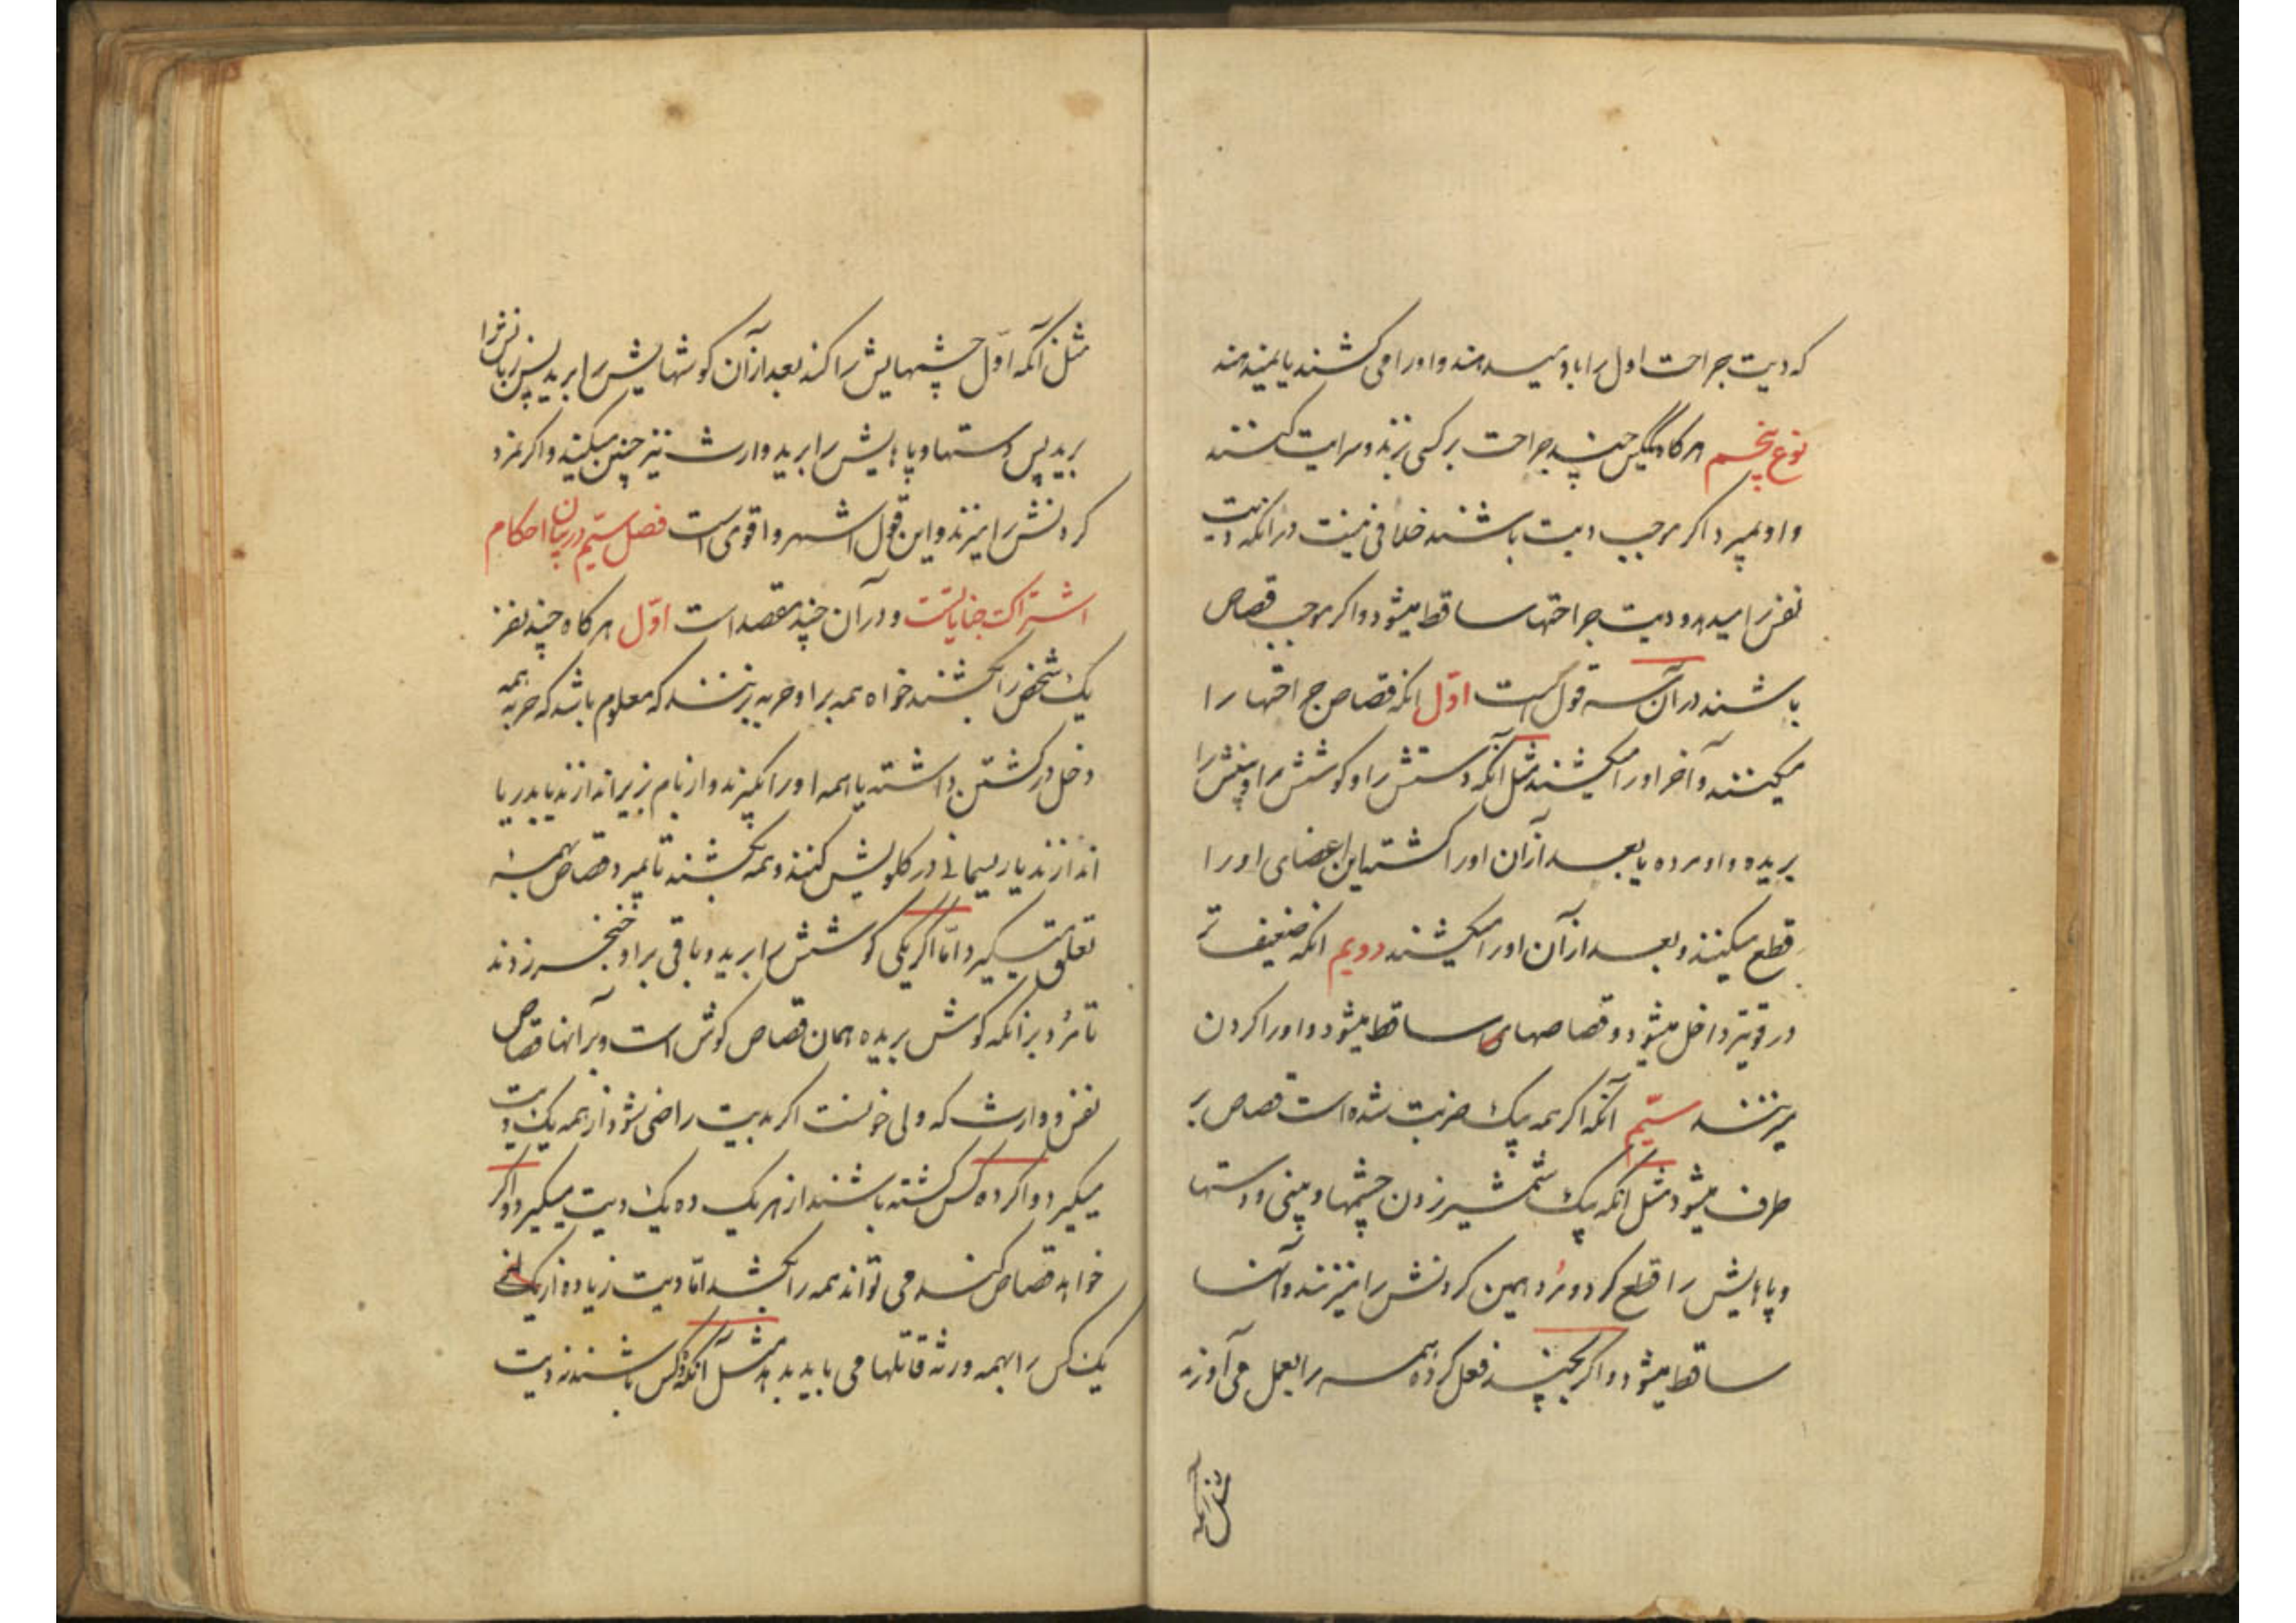 که دیت جراحت اول را باو میدهند و او را می کشند یا نمیدهند
نوع پنجم هرگاه یکس چند جراحت بر کسی زند و سرایت کنند
و او بمیرد اگر موجب دیت باشند خلافی نیست در آنکه دیت
نفس را میدهد و دیت جراحتها ساقط میشود و اگر موجب قصاص
باشند در آن سه قول است اوّل آنکه قصاص جراحتها را
میکنند و آخر او را میکشند مثل آنکه دستش را و گوشش را و بینیش را
بریده و او مرده یا بعد از آن او را کشته این اعضای او را
قطع میکنند و بعد از آن او را میکشند دویم آنکه ضعیف تر
در قویتر داخل میشود و قصاصهای ساقط میشود و او را گردن
میزنند سیّم آنکه اگر همه بیک ضربت شده است قصاص بر
طرف میشود مثل آنکه بیک شمشیر زدن چشمها و بینی و دستها
و پاهایش را قطع کرد و مُرد همین گردنش را میزنند و آنها
ساقط میشود و اگر بچند فعل کرده همه را بعمل می آورند
مثل آنکه
مثل آنکه اوّل چشمهایش را کند بعد از آن گوشهایش را برید پس زبانش را
برید پس دستها و پاهایش را برید وارث نیز چنین میکند و اگر نمرد
گردنش را میزند و این قول اشهر و اقوی است فصل سیّم در بیان احکام
اشتراک جنایاتست و در آن چند مقصد است اوّل هرگاه چند نفر
یک شخص را بکشند خواه همه بر او حربه زنند که معلوم باشد که حربه همه
دخل در کشتن داشته یا همه او را بگیرند و از بام بزیر اندازند یا بدریا
اندازند یا ریسمانی در گلویش کنند و همه بکشند تا بمیرد قصاص بهمه
تعلق میگیرد امّا اگر یکی گوشش را برید و باقی بر او خنجر زدند
تا مُرد بر آنکه گوش بریده همان قصاص گوش است و بر آنها قصاص
نفس و وارث که ولی خونست اگر بدیت راضی شود از همه یک دیت
میگیرد و اگر ده کس کشته باشند از هر یک ده یک دیت میگیرد و اگر
خواهد قصاص کند می تواند همه را بکشد امّا دیت زیاده از
یک کس را بهمه ورثه قاتلها می باید بدهد مثل آنکه دو کس باشند نه دیت